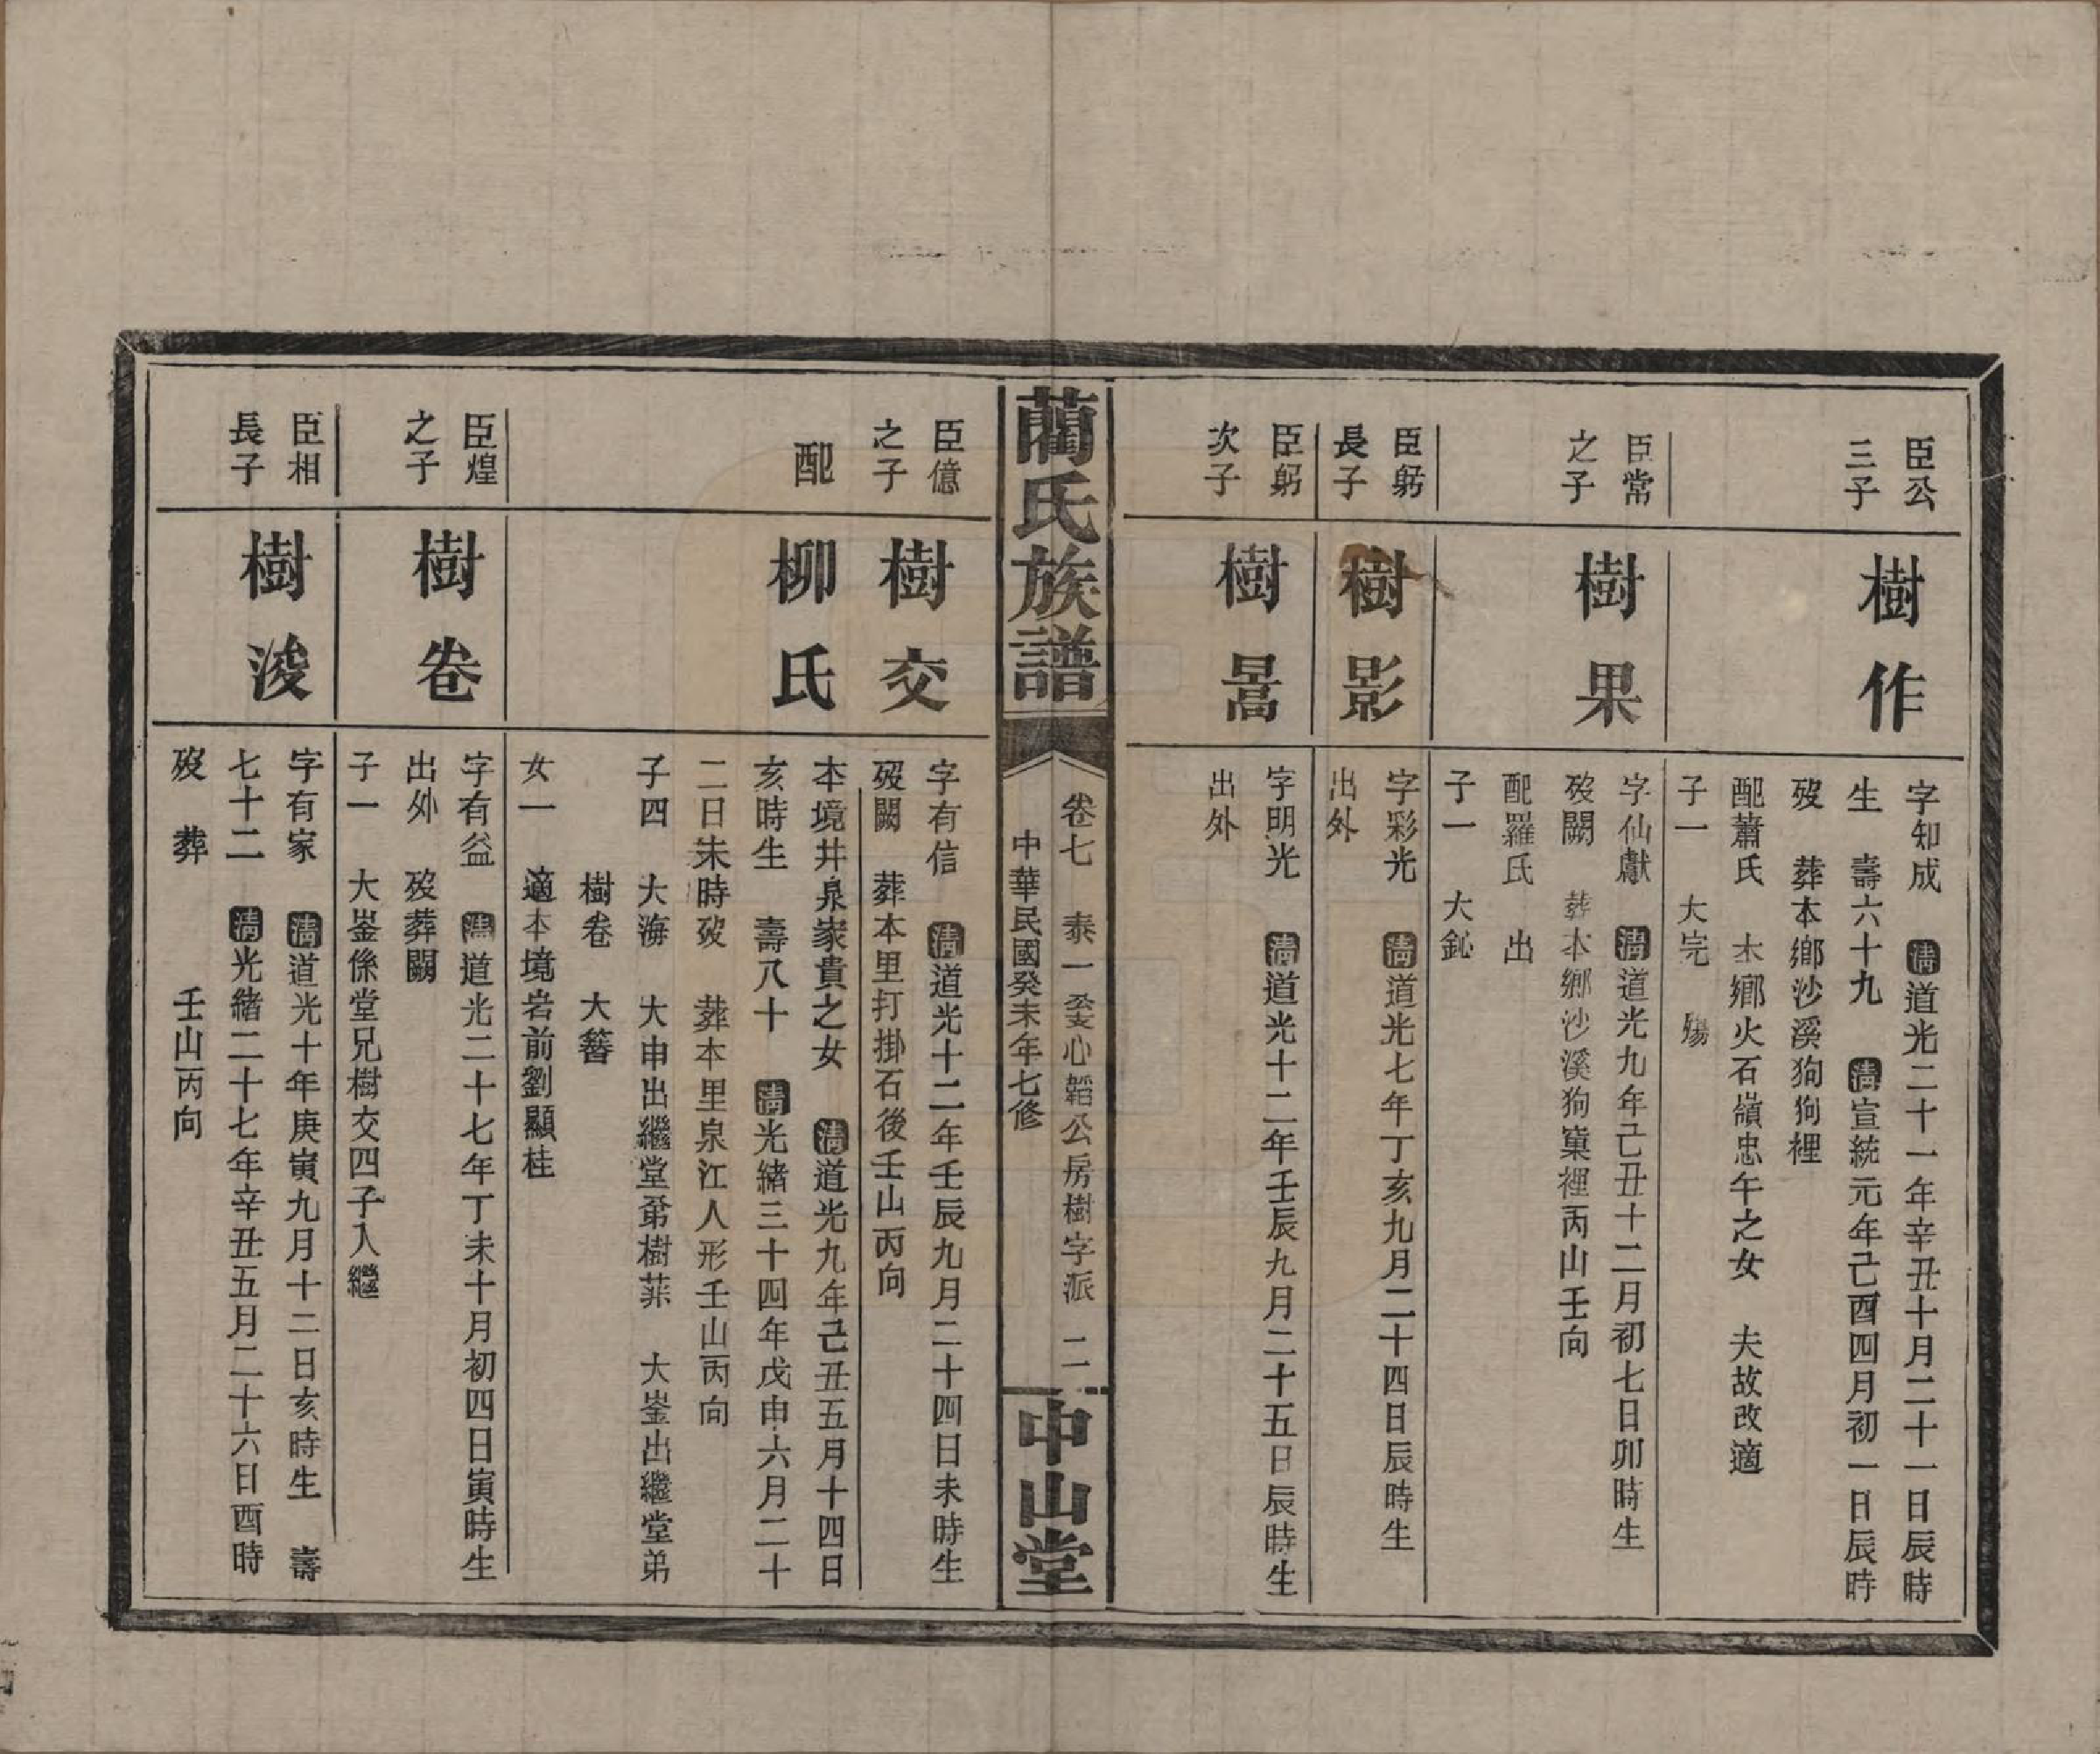 臣公
三子
樹作
字知成　清道光二十一年辛丑十月二十一日辰時
生　壽六十九　清宣統元年己酉四月初一日辰時
歿　葬本鄉沙溪狗狗裡
配蕭氏　本鄉火石嶺忠午之女　夫故改適
子一　大完　殤
臣常
之子
樹果
字仙獻　清道光九年己丑十二月初七日卯時生
歿闕　葬本鄉沙溪狗窠裡丙山壬向
配羅氏　出
子一　大鈊
臣躬
長子
樹影
字彩光　清道光七年丁亥九月二十四日辰時生
出外
臣躬
次子
樹暠
字明光　清道光十二年壬辰九月二十五日辰時生
出外
藺氏族譜
卷七　泰一　心韜公房樹字派　二
中華民國癸未年七修
中山堂
臣億
之子
樹交
字有信　清道光十二年壬辰九月二十四日未時生
歿闕　葬本里打掛石後壬山丙向
配
柳氏
本境井泉家貴之女　清道光九年己丑五月十四日
亥時生　壽八十　清光緒三十四年戊申六月二十
二日未時歿　葬本里泉江人形壬山丙向
子四　大海　大申出繼堂弟樹菲　大崟出繼堂弟
樹卷　大簪
女一　適本境岩前劉顯桂
臣煌
之子
樹卷
字有益　清道光二十七年丁未十月初四日寅時生
出外　歿葬闕
子一　大崟係堂兄樹交四子入繼
臣相
長子
樹浚
字有家　清道光十年庚寅九月十二日亥時生　壽
七十二　清光緒二十七年辛丑五月二十六日酉時
歿　葬　　壬山丙向